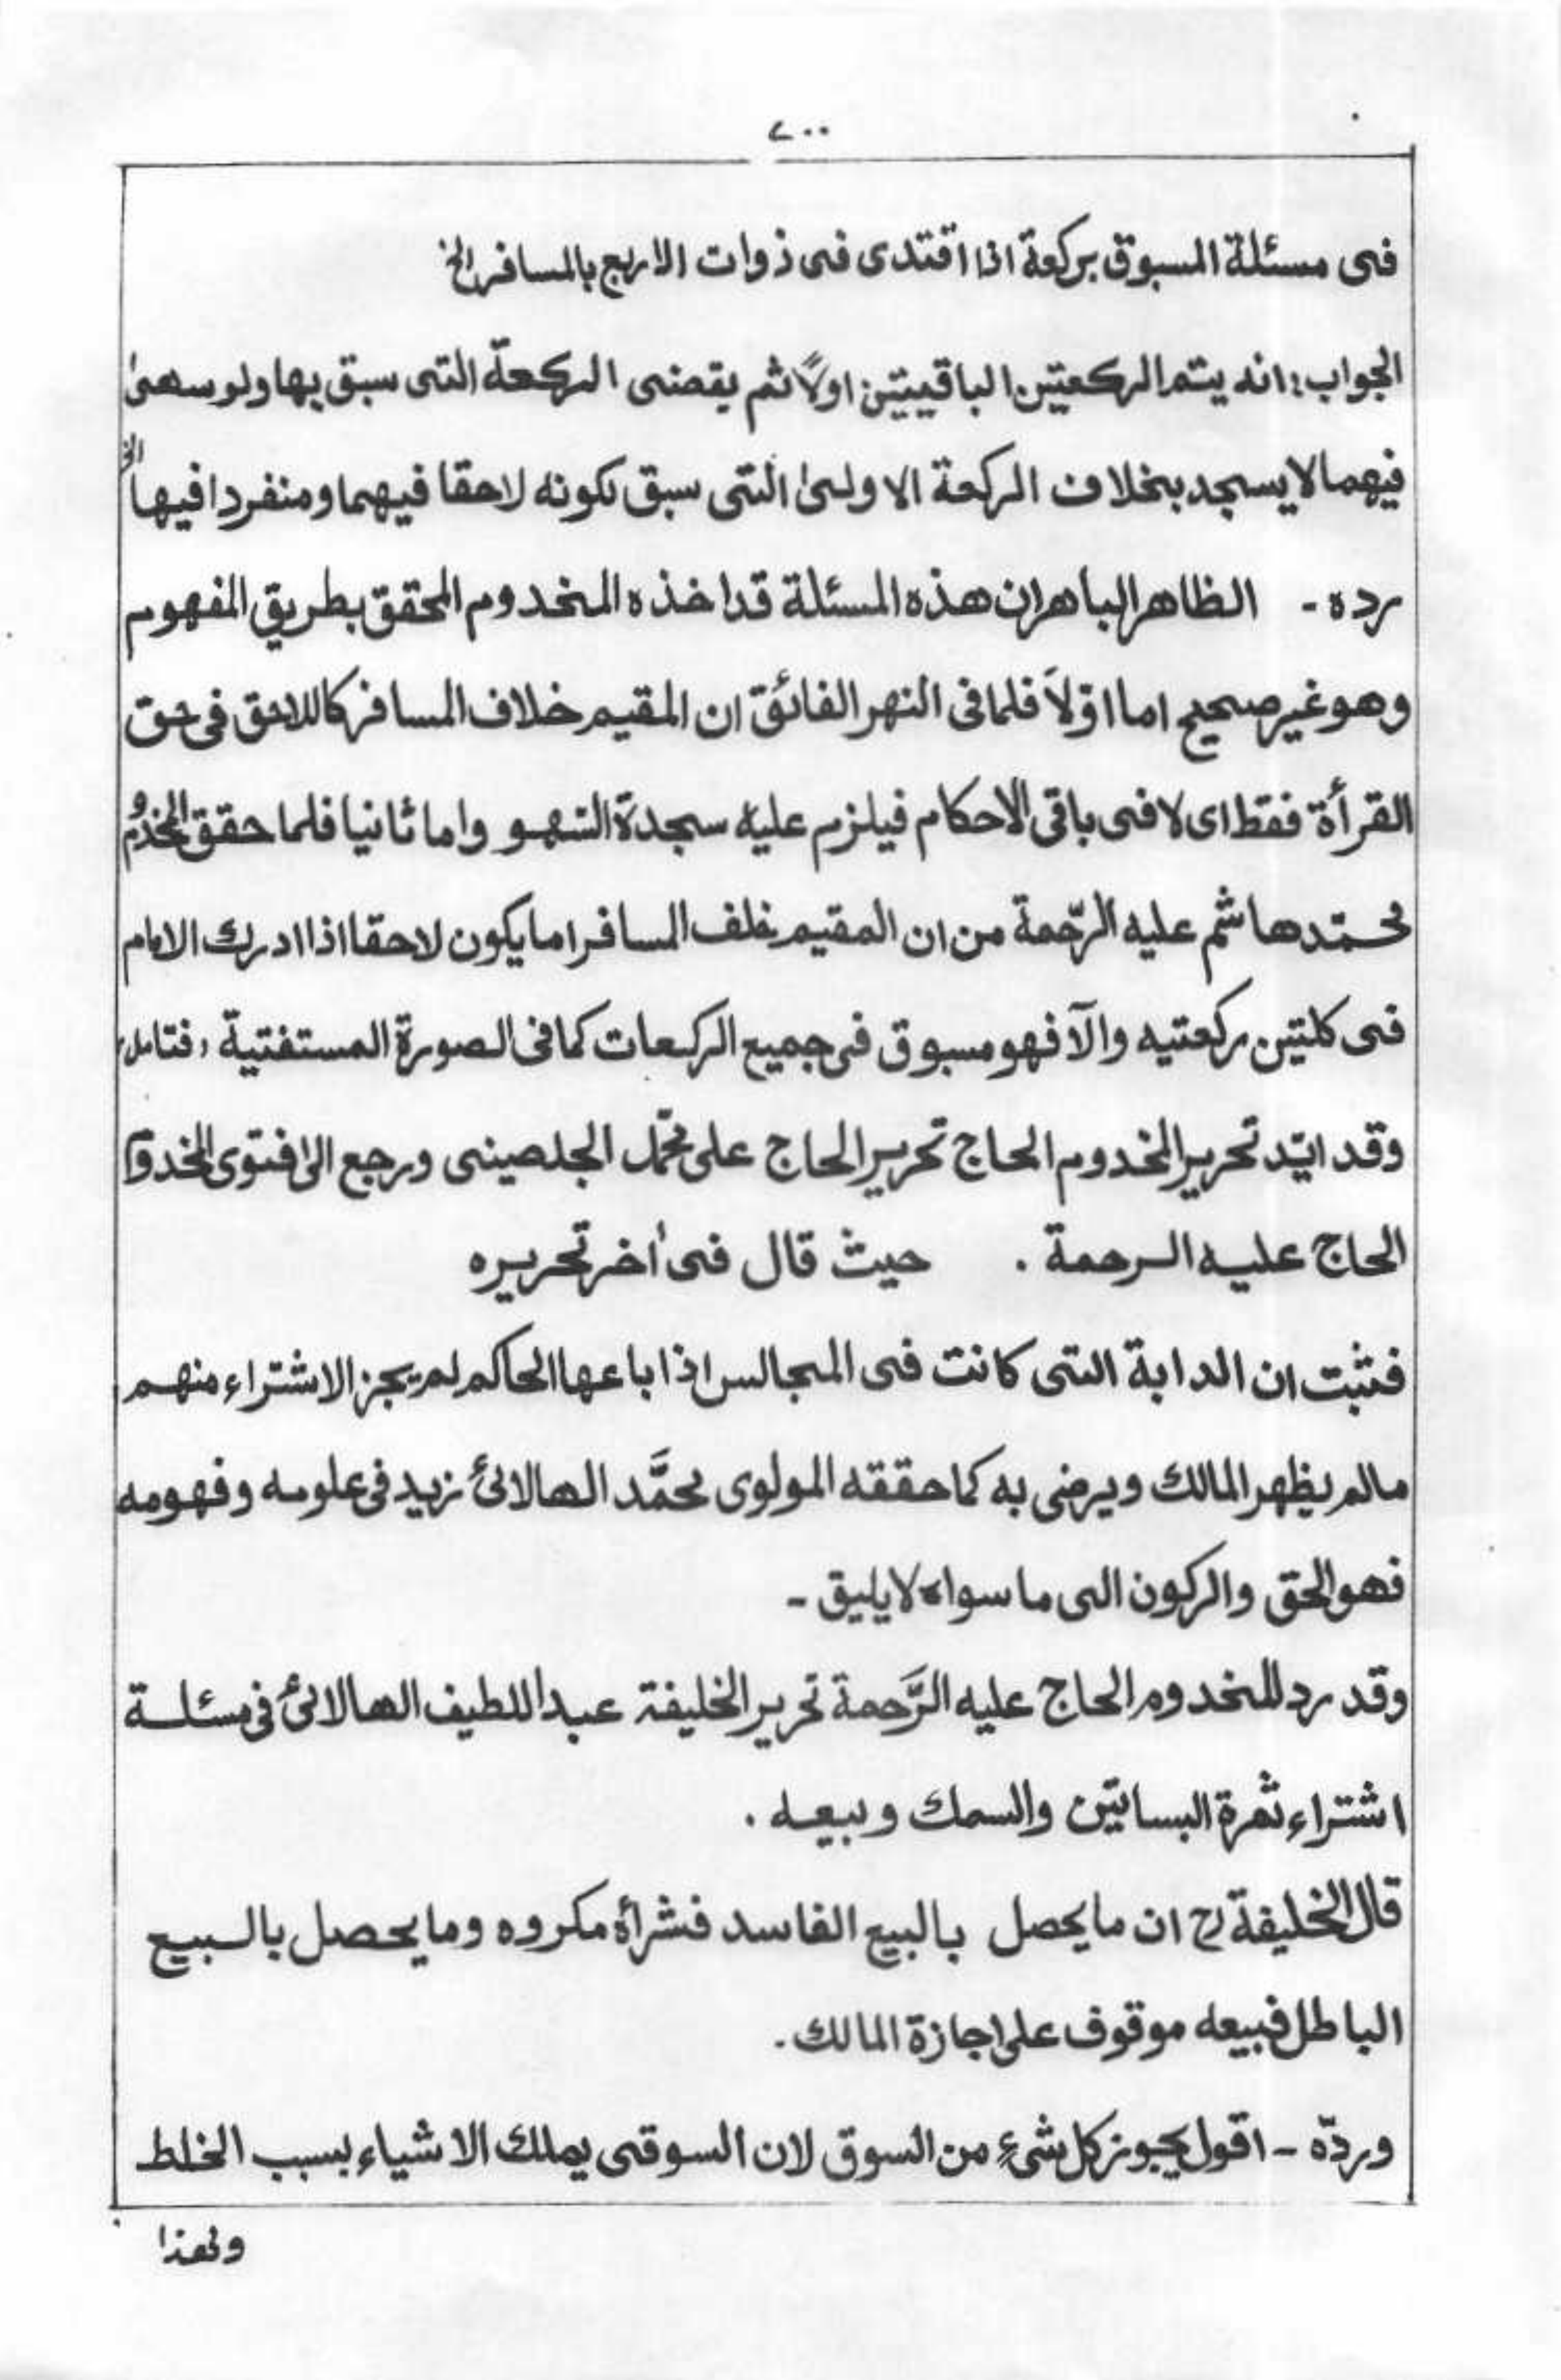 ٧٠٠
فى مسئلة المسبوق بركعة اذا اقتدى فى ذوات الاربع بالمسافر الخ
الجواب: انه يتم الركعتين الباقيتين اولاً ثم يقضى الركعة التى سبق بها ولو سهىٰ
فيهما لا يسجد بخلاف الركعة الاولىٰ التى سبق لكونه لاحقا فيهما ومنفردا فيها الخ
رده - الظاهر الباهر ان هذه المسئلة قد اخذه المخدوم المحقق بطريق المفهوم
وهو غير صحيح اما اوّلاً فلما فى النهر الفائق ان المقيم خلاف المسافر كاللاحق فى حق
القرأة فقط اى لا فى باقى الاحكام فيلزم عليه سجدة السهو واما ثانيا فلما حقق المخدوم
محمّد هاشم عليه الرّحمة من ان المقيم خلف المسافر اما يكون لاحقا اذا ادرك الامام
فى كلتين ركعتيه والّا فهو مسبوق فى جميع الركعات كما فى الصورة المستفتية، فتامل،
وقد ايّد تحرير المخدوم الحاج تحرير الحاج على محمّد الجلصينى ورجع الىٰ فتوى المخدوم
الحاج عليه الرحمة . حيث قال فى أخر تحريره
فثبت ان الدابة التى كانت فى المجالس اذا باعها الحاكم لم يجز الاشتراء منهم
مالم يظهر المالك ويرضى به كما حققه المولوى محمَّد الهالائى زيد فى علومه وفهومه
فهو الحق والركون الى ما سواه لا يليق -
وقد رد المخدوم الحاج عليه الرَّحمة تحرير الخليفة عبد اللطيف الهالائى فى مسئلة
اشتراء ثمرة البساتين والسمك وبيعه .
قال الخليفة رح ان ما يحصل بالبيع الفاسد فشرأه مكروه وما يحصل بالبيع
الباطل فبيعه موقوف على اجازة المالك .
وردّه - اقول يجوز كل شىءٍ من السوق لان السوقى يملك الاشياء بسبب الخلط
ولهذا